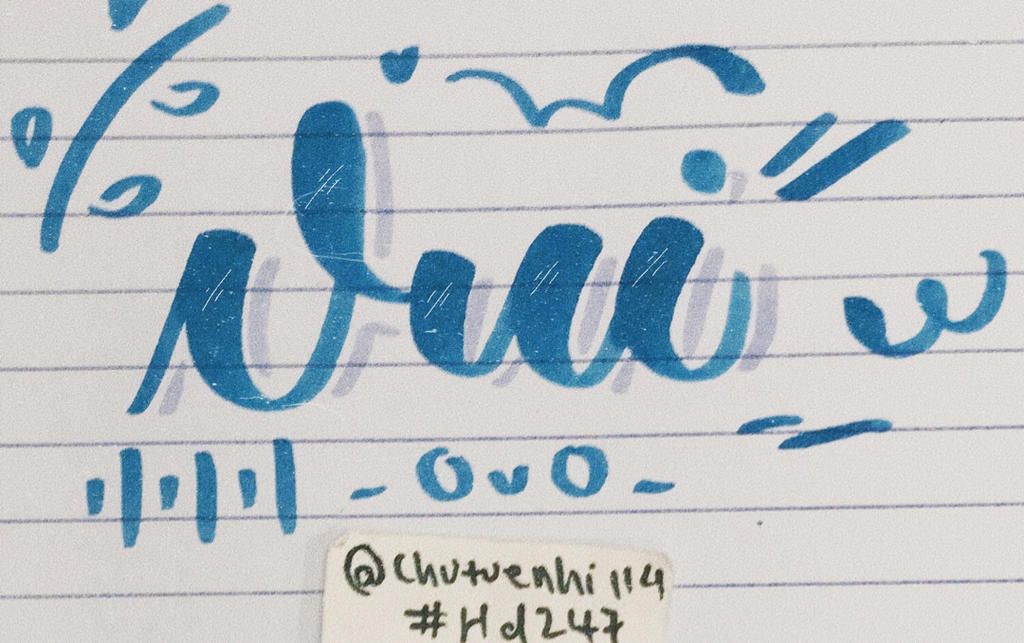 vui
- OvO -
@chutuenhi114
#Hd247